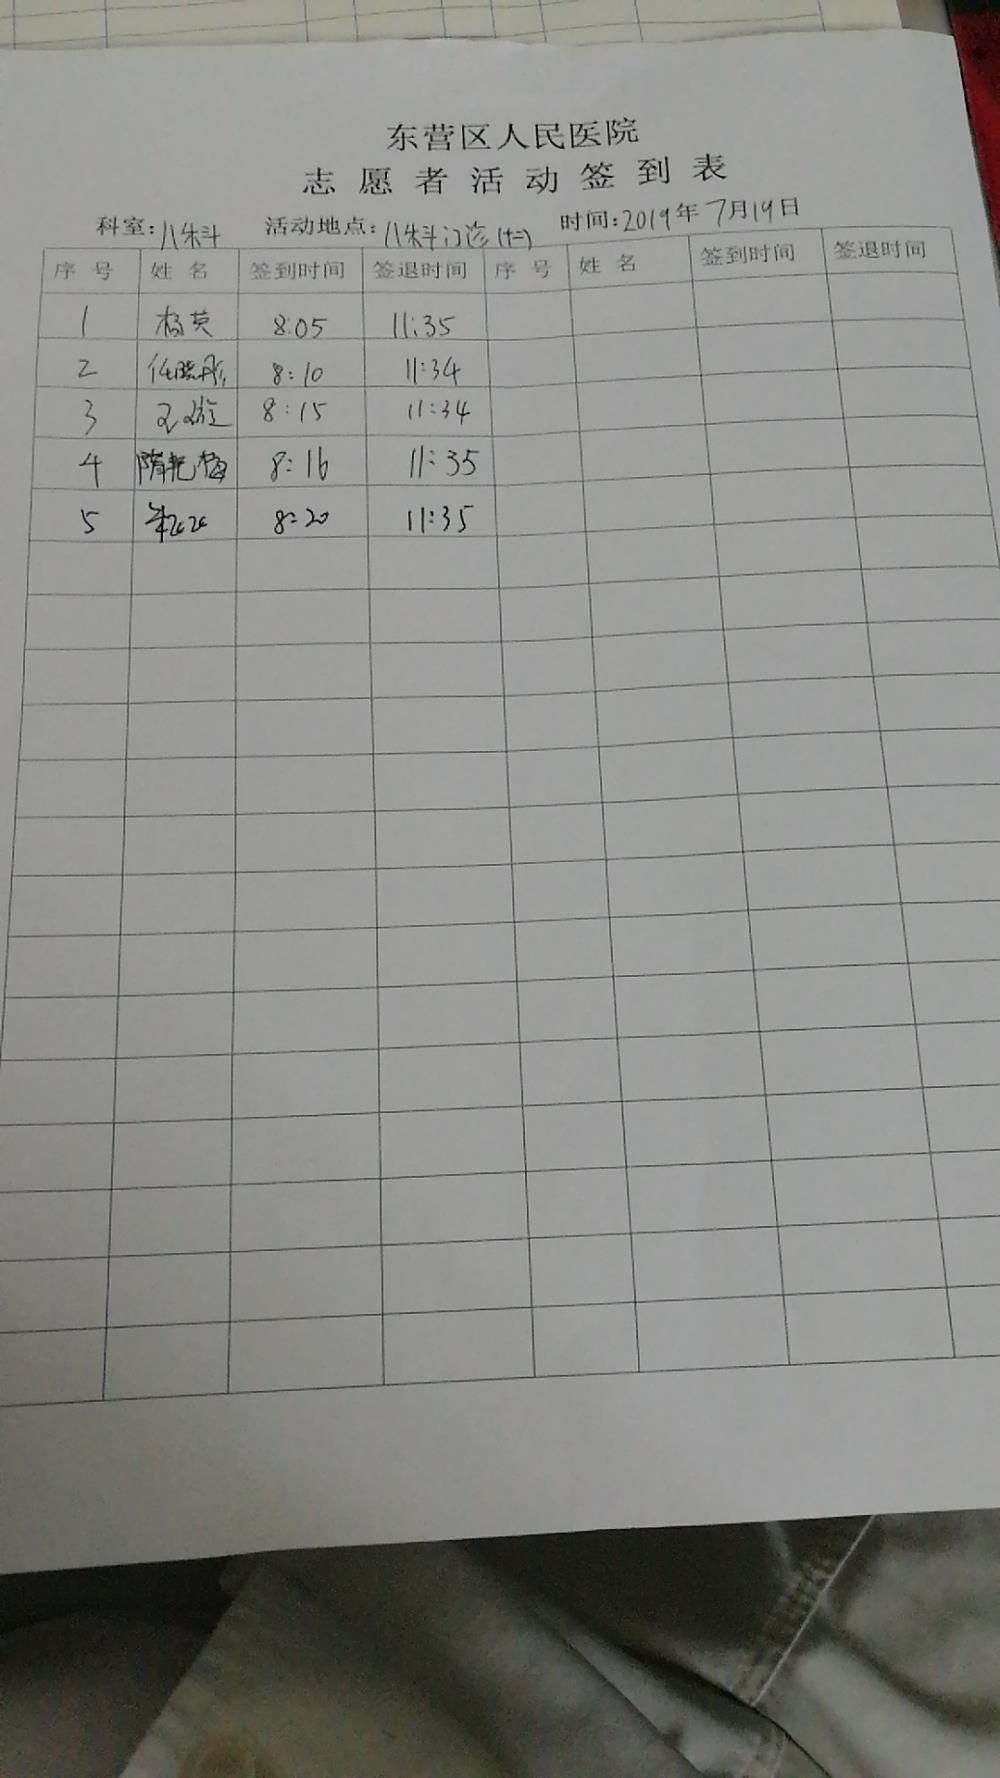 东营区人民医院
志愿者活动签到表
科室: 活动地点: 门诊 时间:2019年7月19日
序号 姓名 签到时间 签退时间 序号 姓名 签到时间 签退时间
1 杨英 8:05 11:35
2 任晓彤 8:10 11:34
3 8:15 11:34
4 隋艳梅 8:16 11:35
5 8:20 11:35